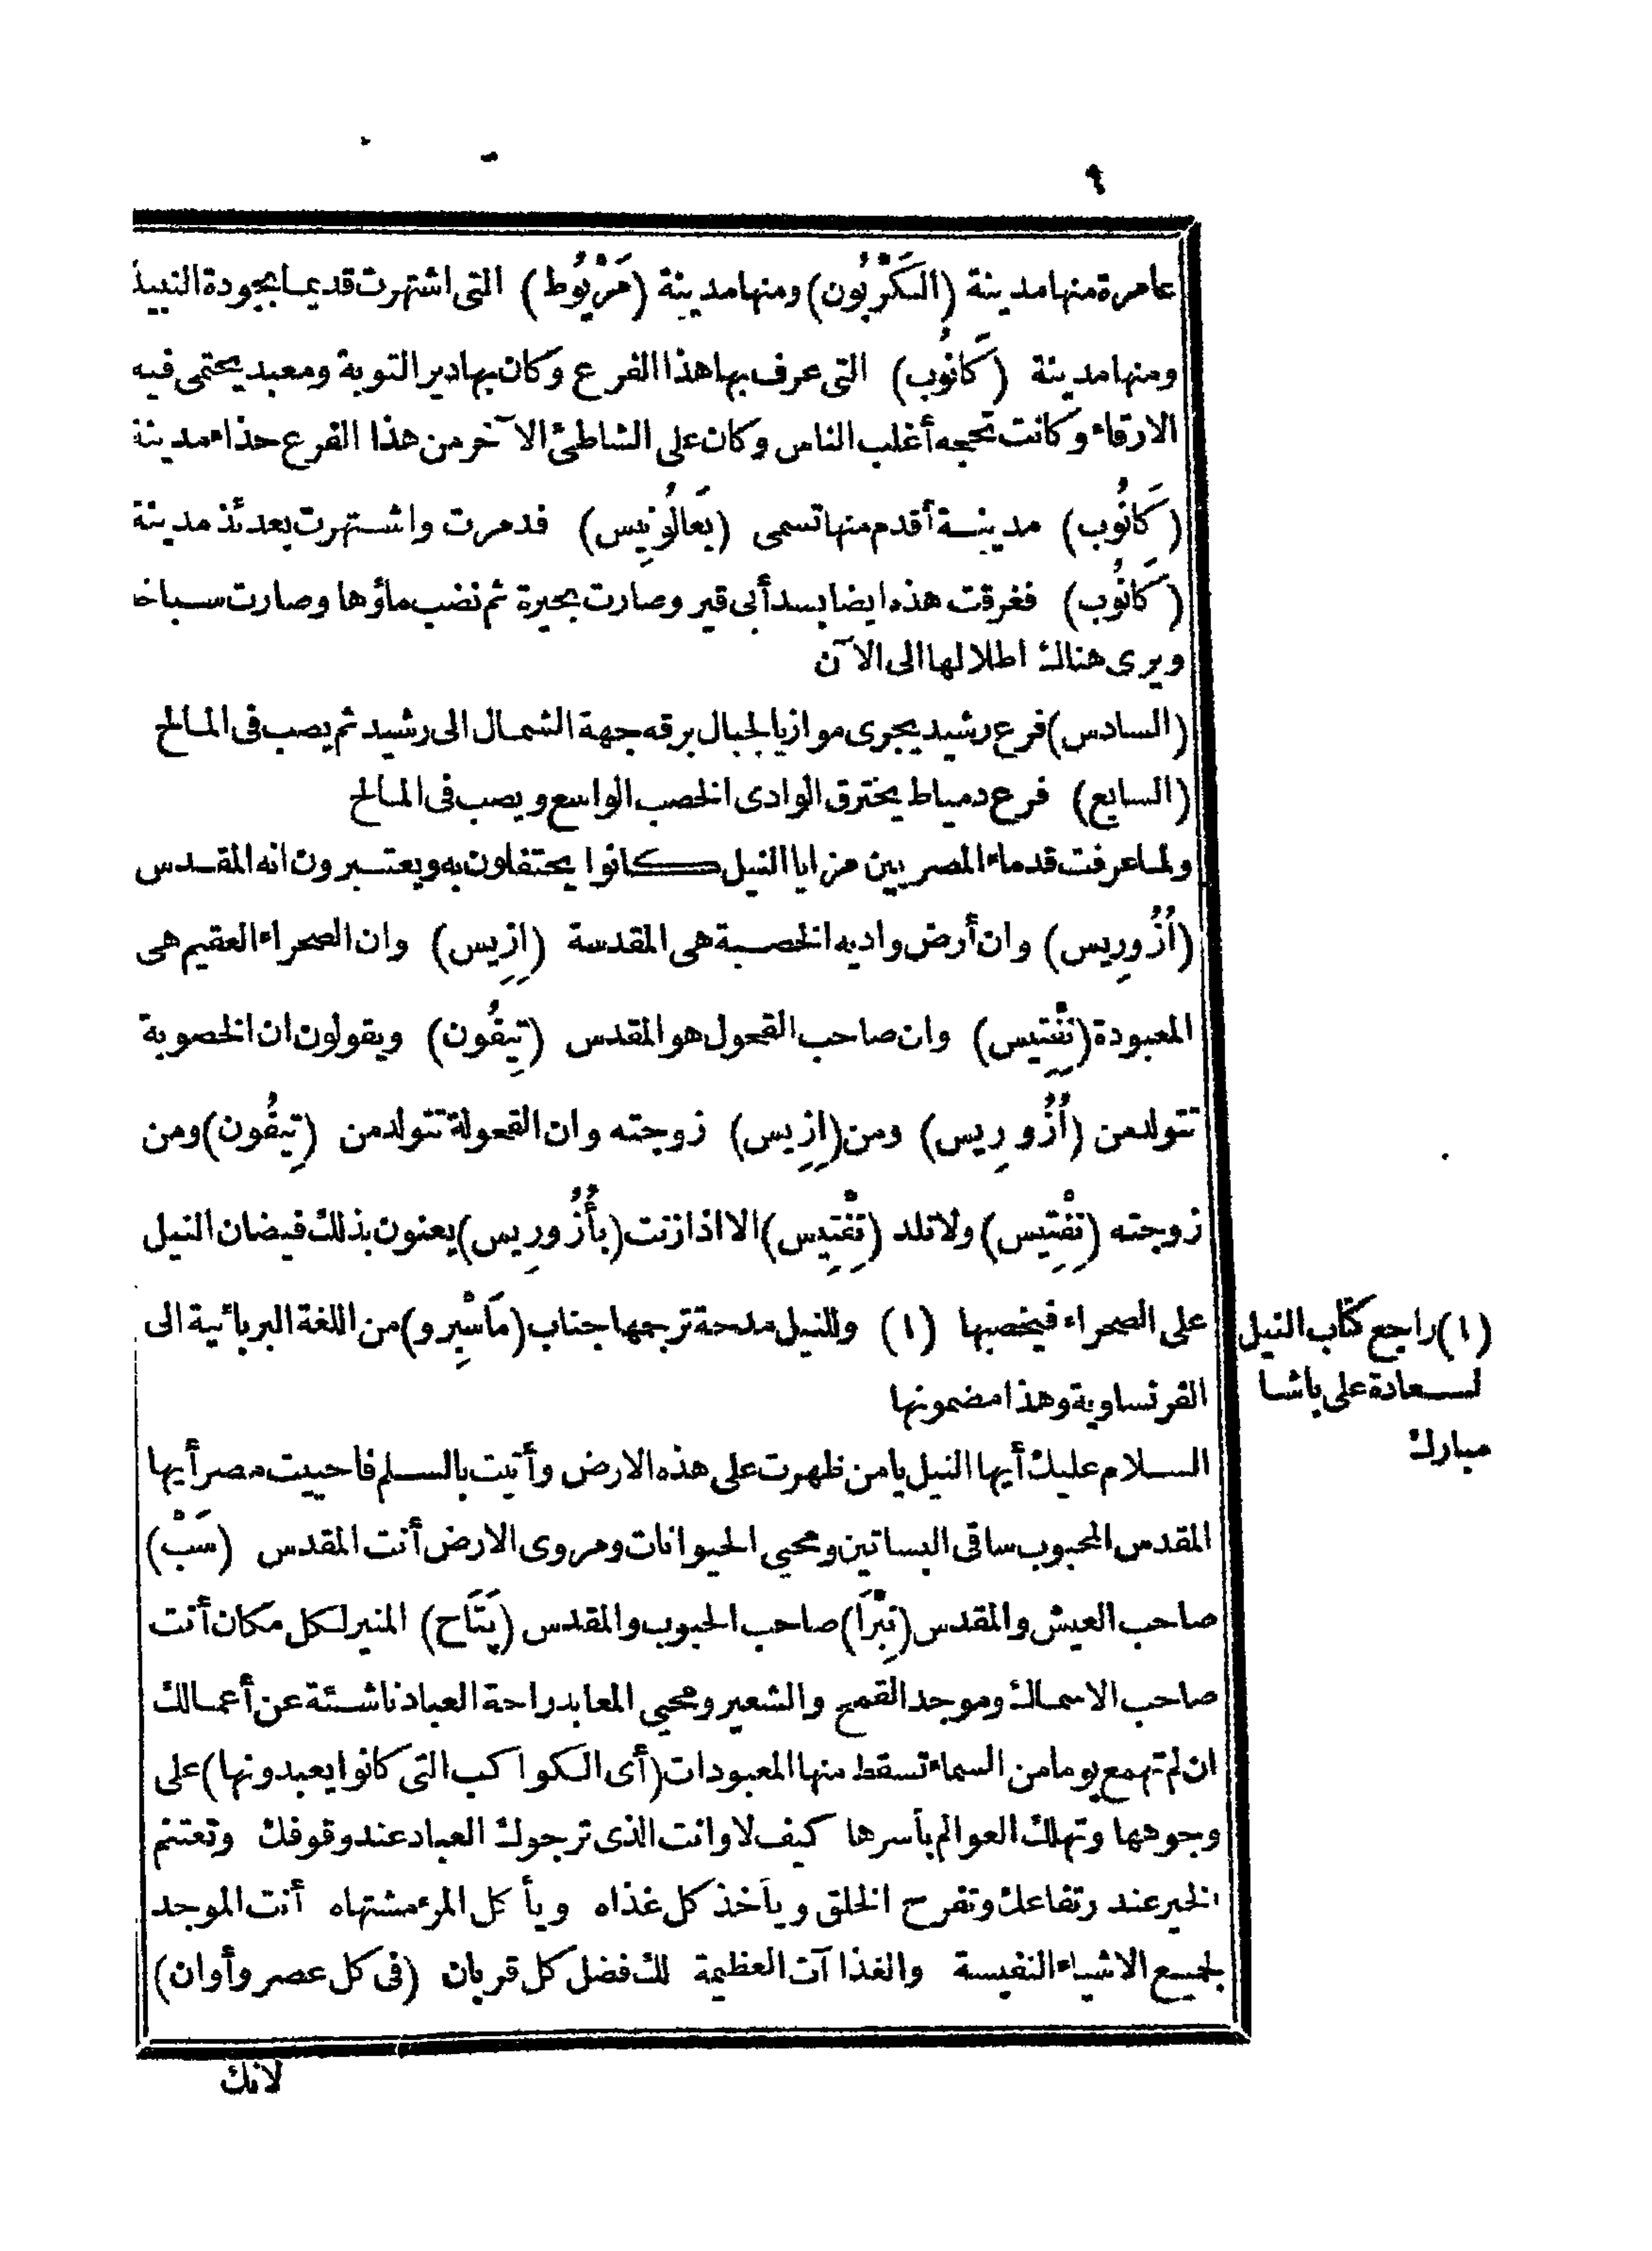 ٩
عامرة منها مدينة (السكَرْبُون) ومنها مدينة (مَرْيُوط) التى اشتهرت قديما بجودة النبيذ
ومنها مدينة (كَانُوب) التى عرف بها هذا الفرع وكان بها دير التوبة ومعبد يحتمى فيه
الارقاء وكانت تحجه أغلب الناس وكان على الشاطئ الآخر من هذا الفرع حذاء مدينة
(كَانُوب) مدينة أقدم منها تسمى (بَعَالُونِيس) فدمرت واشتهرت بعدئذ مدينة
(كَانُوب) فغرقت هذه ايضا بسد أبى قير وصارت بحيرة ثم نضب ماؤها وصارت سباخا
ويرى هنالك اطلالها الى الآن
(السادس) فرع رشيد يجرى موازيا لجبال برقه جهة الشمال الى رشيد ثم يصب فى المالح
(السابع) فرع دمياط يخترق الوادى الخصب الواسع ويصب فى المالح
ولما عرفت قدماء المصريين مزايا النيل كانوا يحتفلون به ويعتبرون انه المقدس
(أُزُورِيس) وان أرض واديه الخصبة هى المقدسة (ازِيِس) وان الصحراء العقيم هى
المعبودة (نِفْتِيس) وان صاحب القحول هو المقدس (تِيفُون) ويقولون ان الخصوبة
تتولد من (أُزُورِيس) ومن (ازِيِس) زوجته وان القحولة تتولد من (تِيفُون) ومن
زوجته (نِفْتِيس) ولا تلد (نِفْتِيس) الا اذا زنت (بأُزُورِيس) يعنون بذلك فيضان النيل
على الصحراء فيخصبها (١) وللنيل مدحة ترجمها جناب (مَاسْبِرو) من اللغة البربائية الى
الفرنساوية وهذا مضمونها
السلام عليك أيها النيل يامن ظهرت على هذه الارض وأتيت بالسلم فاحييت مصر أيها
المقدس المحبوب ساقى البساتين ومحيي الحيوانات ومروى الارض أنت المقدس (سَبْ)
صاحب العيش والمقدس (نِبْرَا) صاحب الحبوب والمقدس (پَتَاح) المنير لكل مكان أنت
صاحب الاسماك وموجد القمح والشعير ومحيي المعابد راحة العباد ناشئة عن أعمالك
ان لم تهمع يوما من السماء تسقط منها المعبودات (أى الكواكب التى كانوا يعبدونها) على
وجوهها وتهلك العوالم بأسرها كيف لا وانت الذى ترجوك العباد عند وقوفك وتغتنم
الخير عند رتفاعك وتفرح الخلق ويأخذ كل غذاه ويأكل المرء مشتهاه أنت الموجد
لجميع الاشياء النفيسة والغذاآت العظيمة لك فضل كل قربان (فى كل عصر وأوان)
لانك
(١) راجع كتاب النيل
لسعادة على باشا
مبارك